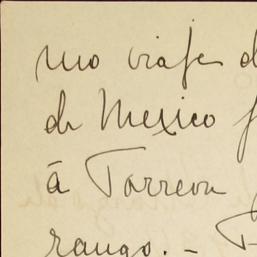 mo viaje d
de Mexico f
á Torreon
rango. - T